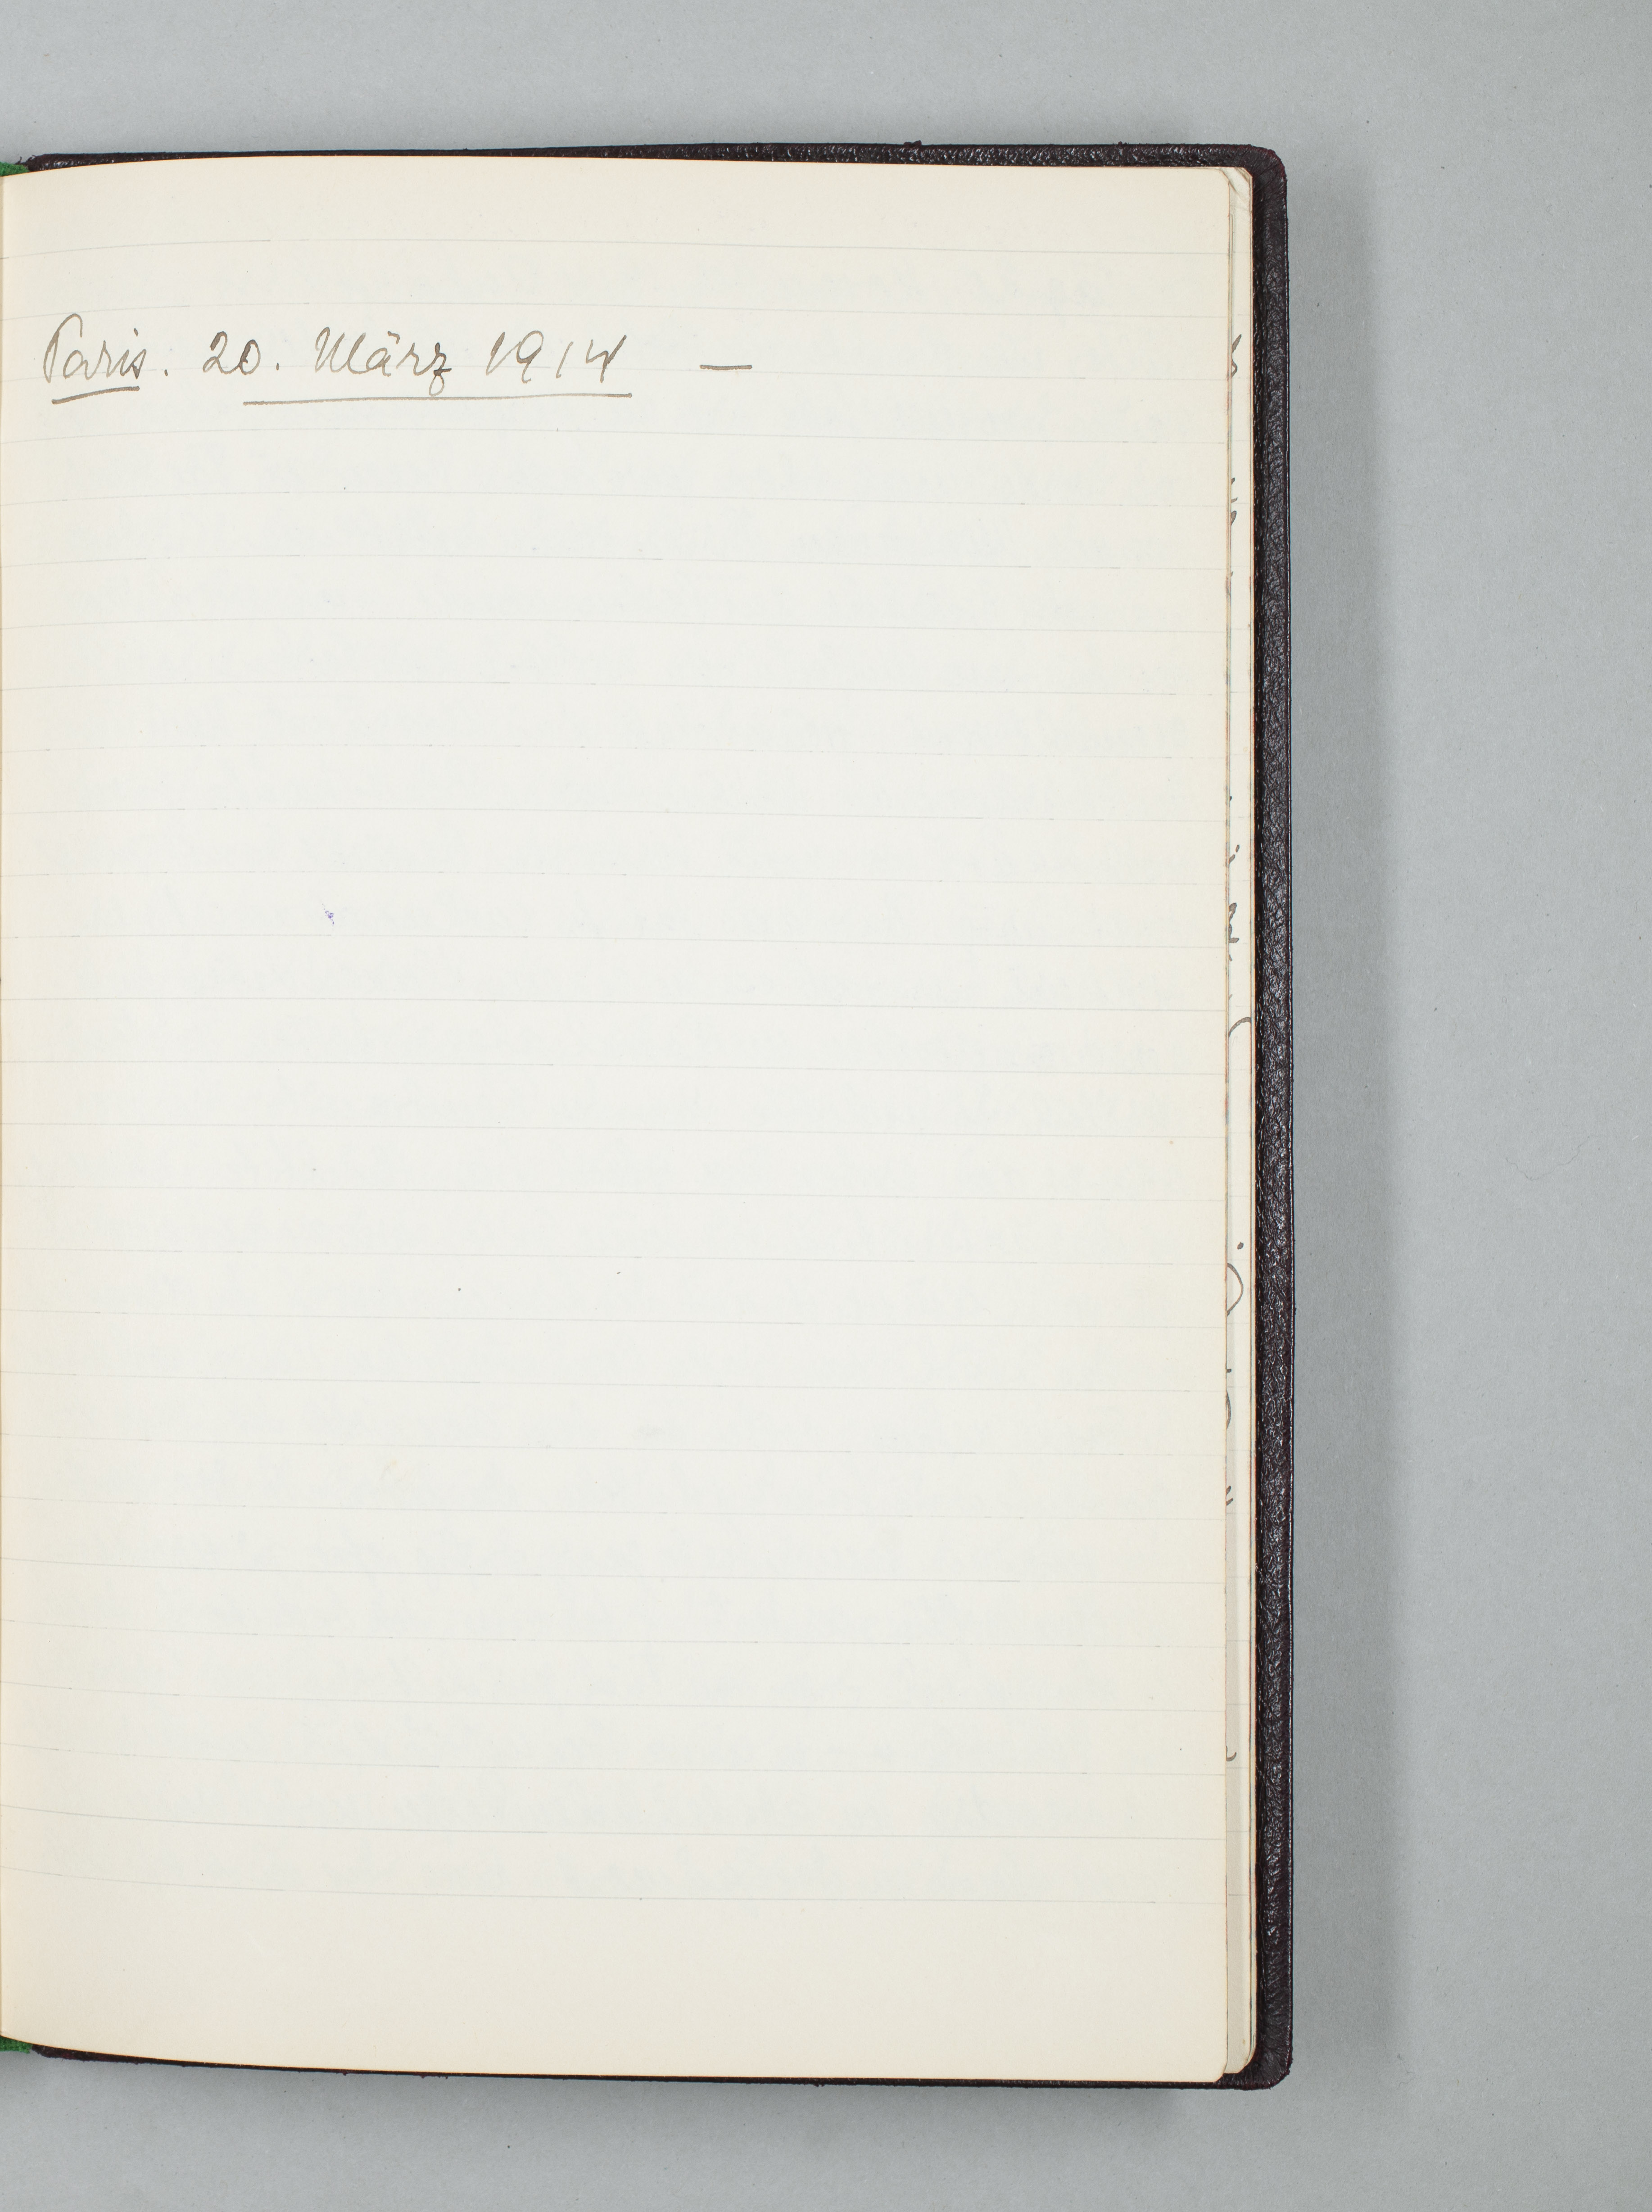 Paris. 20. März 1914 —